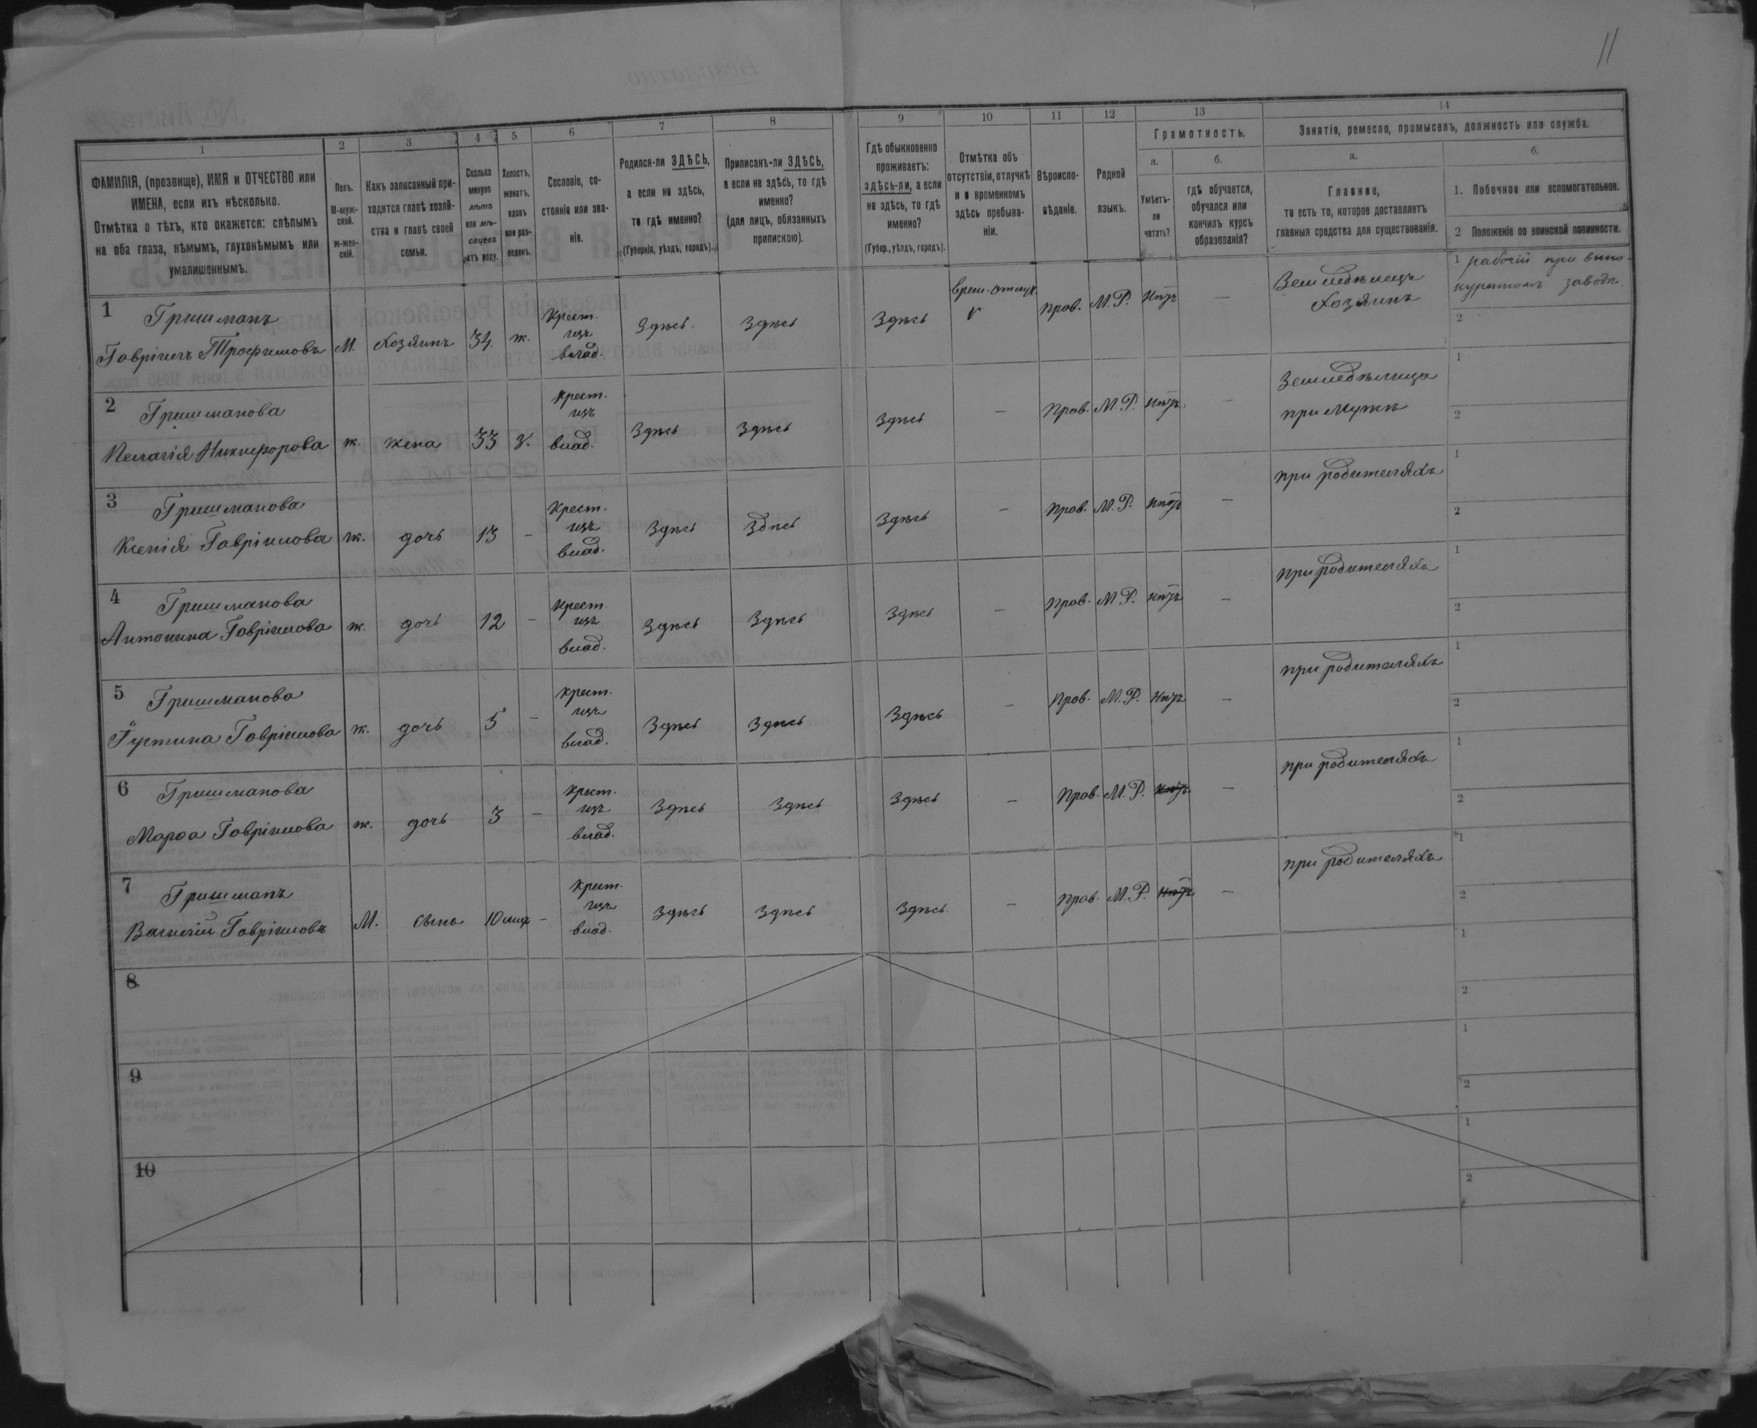 11
1
2
3
4
5
6
7
8
9
10
11
12
13
14
ФАМИЛІЯ, (прозвище), ИМЯ и ОТЧЕСТВО или
ИМЕНА, если ихъ нѣсколько.
Отмѣтка о тѣхъ, кто окажется: слѣпымъ
на оба глаза, нѣмымъ, глухонѣмымъ или
умалишеннымъ.
Полъ.
М-муж-
ской.
ж-жен-
скій.
Какъ записанный при-
ходится главѣ хозяй-
ства и главѣ своей
семьи.
Сколько
минуло
лѣтъ
или мѣ-
сяцевъ
отъ роду.
Холостъ,
женатъ,
вдовъ
или раз-
веденъ.
Сословіе, со-
стояніе или зва-
ніе.
Родился-ли ЗДѢСЬ,
а если не здѣсь,
то гдѣ именно?
(Губернія, уѣздъ, городъ).
Приписанъ-ли ЗДѢСЬ,
а если не здѣсь, то гдѣ
именно?
(для лицъ, обязанныхъ
припискою).
Гдѣ обыкновенно
проживаетъ:
здѣсь-ли, а если
не здѣсь, то гдѣ
именно?
(Губер., уѣздъ, городъ).
Отмѣтка объ
отсутствіи, отлучкѣ
и о временномъ
здѣсь пребыва-
ніи.
Вѣроиспо-
вѣданіе.
Родной
языкъ.
Грамотность.
а.
Умѣетъ-
ли
читать?
б.
гдѣ обучается,
обучался или
кончилъ курсъ
образованія?
Занятіе, ремесло, промыселъ, должность или служба.
а.
Главное,
то есть то, которое доставляетъ
главныя средства для существованія.
б.
1. Побочное или вспомогательное.
2 Положеніе по воинской повинности.
1 Гришманъ
Гавріилъ Трофимовъ М. Хозяинъ 34. ж. Крест. изъ влад. Здѣсь Здѣсь Здѣсь врем. отлуч. V Прав. М.Р. Нѣтъ — Земледѣлецъ Хозяинъ 1 рабочій при вино-
куренномъ заводѣ.
2
2 Гришманова
Пелагія Никифорова ж. жена 33 з. Крест. изъ влад. Здѣсь Здѣсь Здѣсь — Прав. М.Р. Нѣтъ — Земледѣлица при мужѣ 1
2
3 Гришманова
Ксенія Гавріилова ж. дочь 13 - Крест. изъ влад. Здѣсь Здѣсь Здѣсь — Прав. М.Р. Нѣтъ — при родителяхъ 1
2
4 Гришманова
Антонина Гавріилова ж. дочь 12 - Крест. изъ влад. Здѣсь Здѣсь Здѣсь — Прав. М.Р. Нѣтъ — при родителяхъ 1
2
5 Гришманова
Гавріилова ж. дочь 5 - Крест. изъ влад. Здѣсь Здѣсь Здѣсь — Прав. М.Р. Нѣтъ — при родителяхъ 1
2
6 Гришманова
Марѳа Гавріилова ж. дочь 3 - Крест. изъ влад. Здѣсь Здѣсь Здѣсь — Прав. М.Р. Нѣтъ — при родителяхъ 1
2
7 Гришманъ
Василій Гавріиловъ М. сынъ 10 мѣс. - Крест. изъ влад. Здѣсь Здѣсь Здѣсь — Прав. М.Р. Нѣтъ — при родителяхъ 1
2
8
1
2
9
1
2
10
1
2